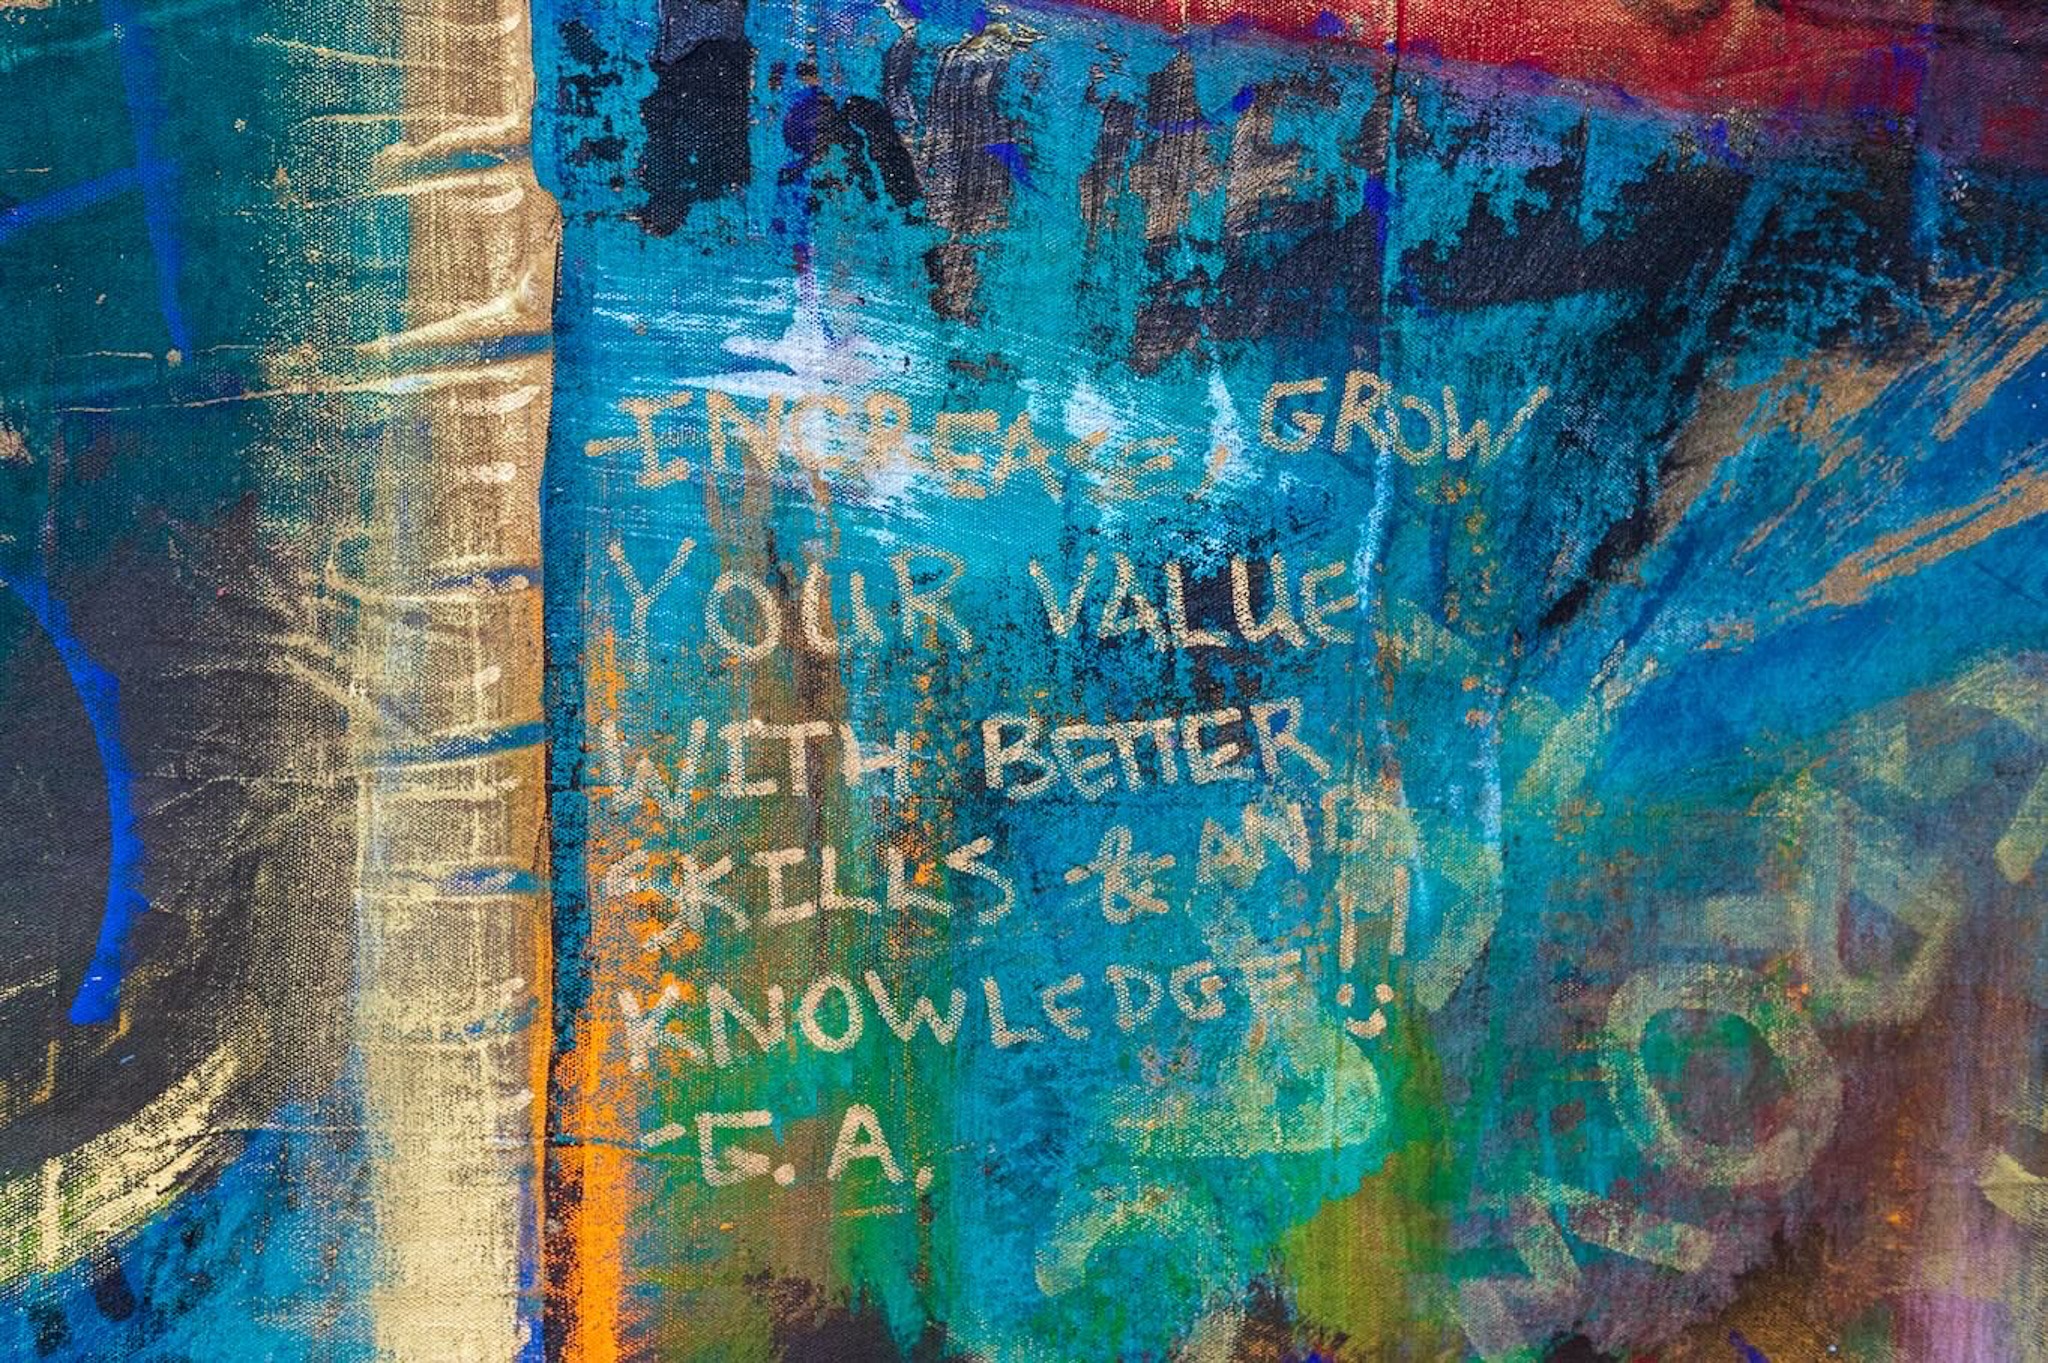 -INCREASE, GROW
YOUR VALUE
WITH BETTER
SKILLS & AND
KNOWLEDGE!!
-G.A.